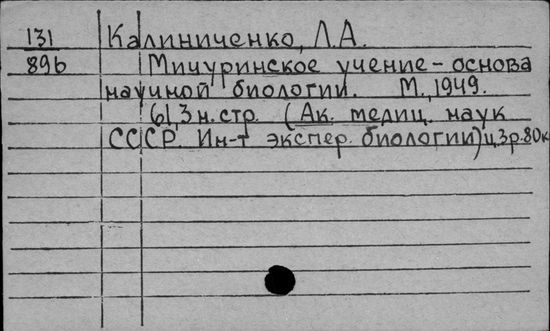 131 Калиниченко, Л.А.
896 Мичуринское учение - основа
научной биологии. М., 1949.
61,3 н. стр. (Ак. медиц. наук
СССР. Ин-т экспер. биологии) ц.3р.80к